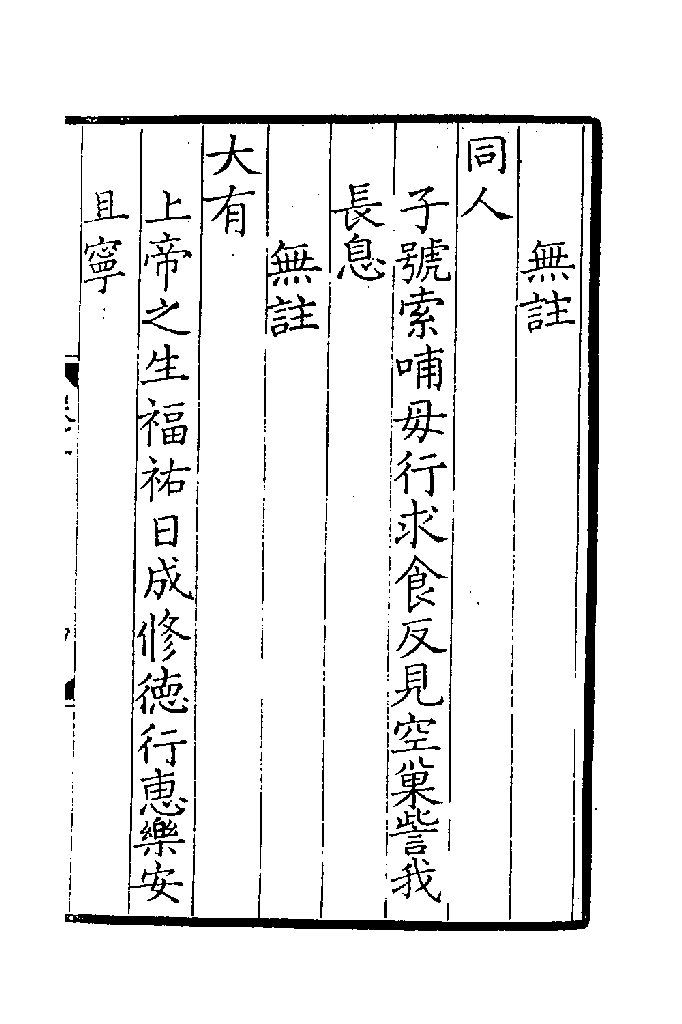 無註
同人
子號索哺毋行求食反見空巢訾我
長息
無註
大有
上帝之生福祐日成修德行惠樂安
且寧